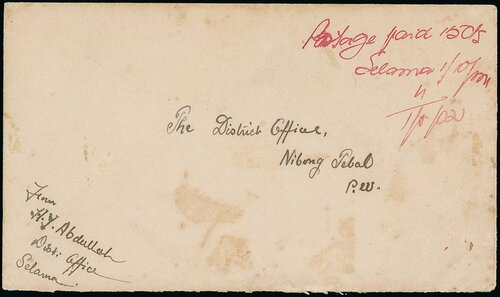 Postage paid 150c
Selama 1/0/02
The District Office,
Nibong Tebal
P.W.
From
H.Y. Abdullah
Dist: Office
Selama.